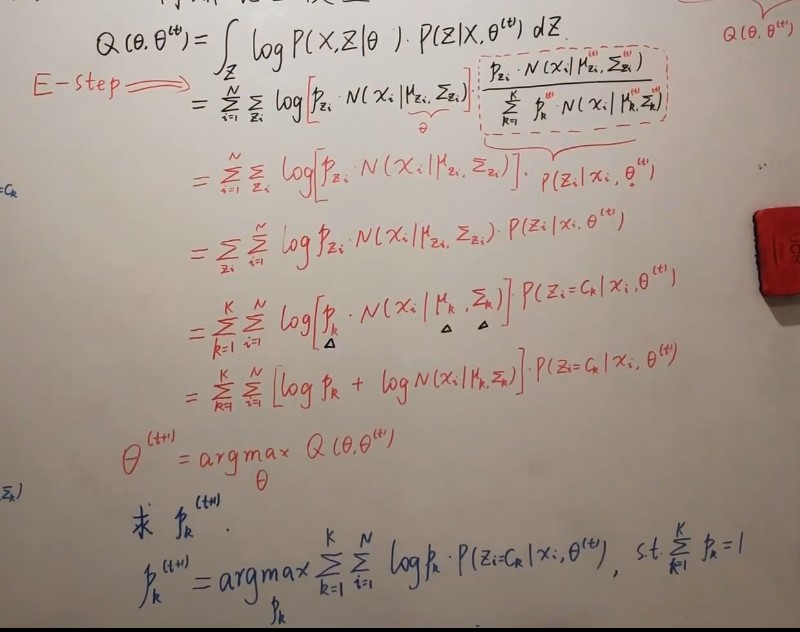 Q(θ,θ^(t)) = ∫_Z log P(X,Z|θ) · P(Z|X,θ^(t)) dZ
Q(θ,θ^(t))
E-step ⟹ = Σ_{i=1}^N Σ_{z_i} log[p_{z_i} · N(x_i|μ_{z_i}, Σ_{z_i})] · (p_{z_i}^(t) · N(x_i|μ_{z_i}^(t), Σ_{z_i}^(t))) / (Σ_{k=1}^K p_k^(t) · N(x_i|μ_k^(t), Σ_k^(t)))
θ
= Σ_{i=1}^N Σ_{z_i} log[p_{z_i} · N(x_i|μ_{z_i}, Σ_{z_i})] · P(z_i|x_i, θ^(t))
=C_k
= Σ_{z_i} Σ_{i=1}^N log p_{z_i} · N(x_i|μ_{z_i}, Σ_{z_i}) · P(z_i|x_i, θ^(t))
= Σ_{k=1}^K Σ_{i=1}^N log[p_k · N(x_i|μ_k, Σ_k)] · P(z_i=C_k|x_i, θ^(t))
△ △ △
= Σ_{k=1}^K Σ_{i=1}^N [log p_k + log N(x_i|μ_k, Σ_k)] · P(z_i=C_k|x_i, θ^(t))
θ^(t+1) = argmax_θ Q(θ,θ^(t))
Σ_k)
求 p_k^(t+1).
p_k^(t+1) = argmax_{p_k} Σ_{k=1}^K Σ_{i=1}^N log p_k · P(z_i=C_k|x_i, θ^(t)), s.t. Σ_{k=1}^K p_k = 1